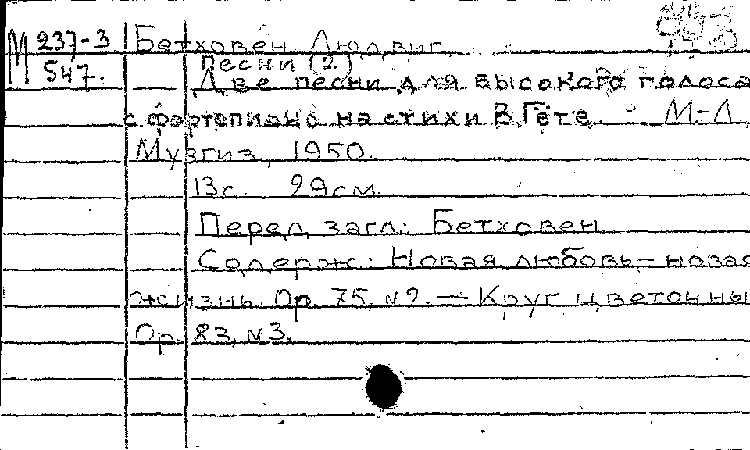 М 237-3 Бетховен Людвиг
547. Песни (2)
— Две песни для высокого голоса
с фортепиано на стихи В. Гёте. М-Л,
Музгиз, 1950.
13с. 29см.
Перед загл.: Бетховен
Содерж.: Новая любовь – новая
жизнь. Ор. 75, №2. — Круг цветочный
Ор. 83, №3.